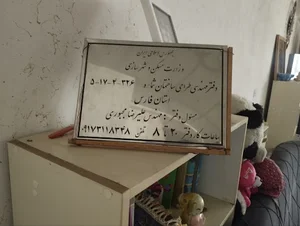 جمهوری اسلامی ایران
وزارت مسکن و شهرسازی
دفتر مهندسی طراحی ساختمان شماره ۵-۱۷-۴-۳۲۶
استان فارس
مسئول دفتر: مهندس علیرضا
ساعات کار دفتر ۸ تا ۲۰ تلفن ۰۹۱۷۳۱۱۸۳۴۸